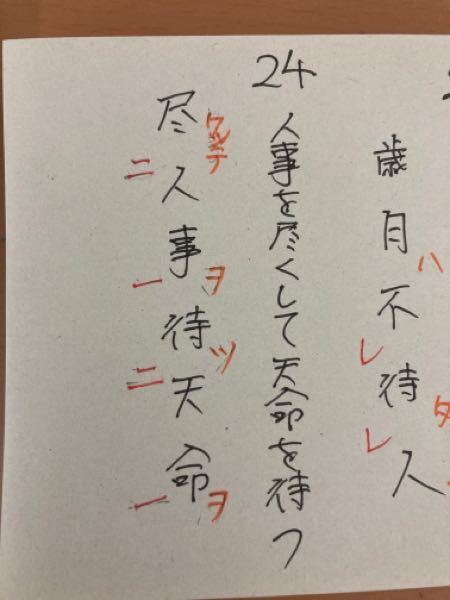 歳月ハ不レ待タレ人
24
人事を尽くして天命を待つ
尽クシテ二人事ヲ一待ツ二天命ヲ一